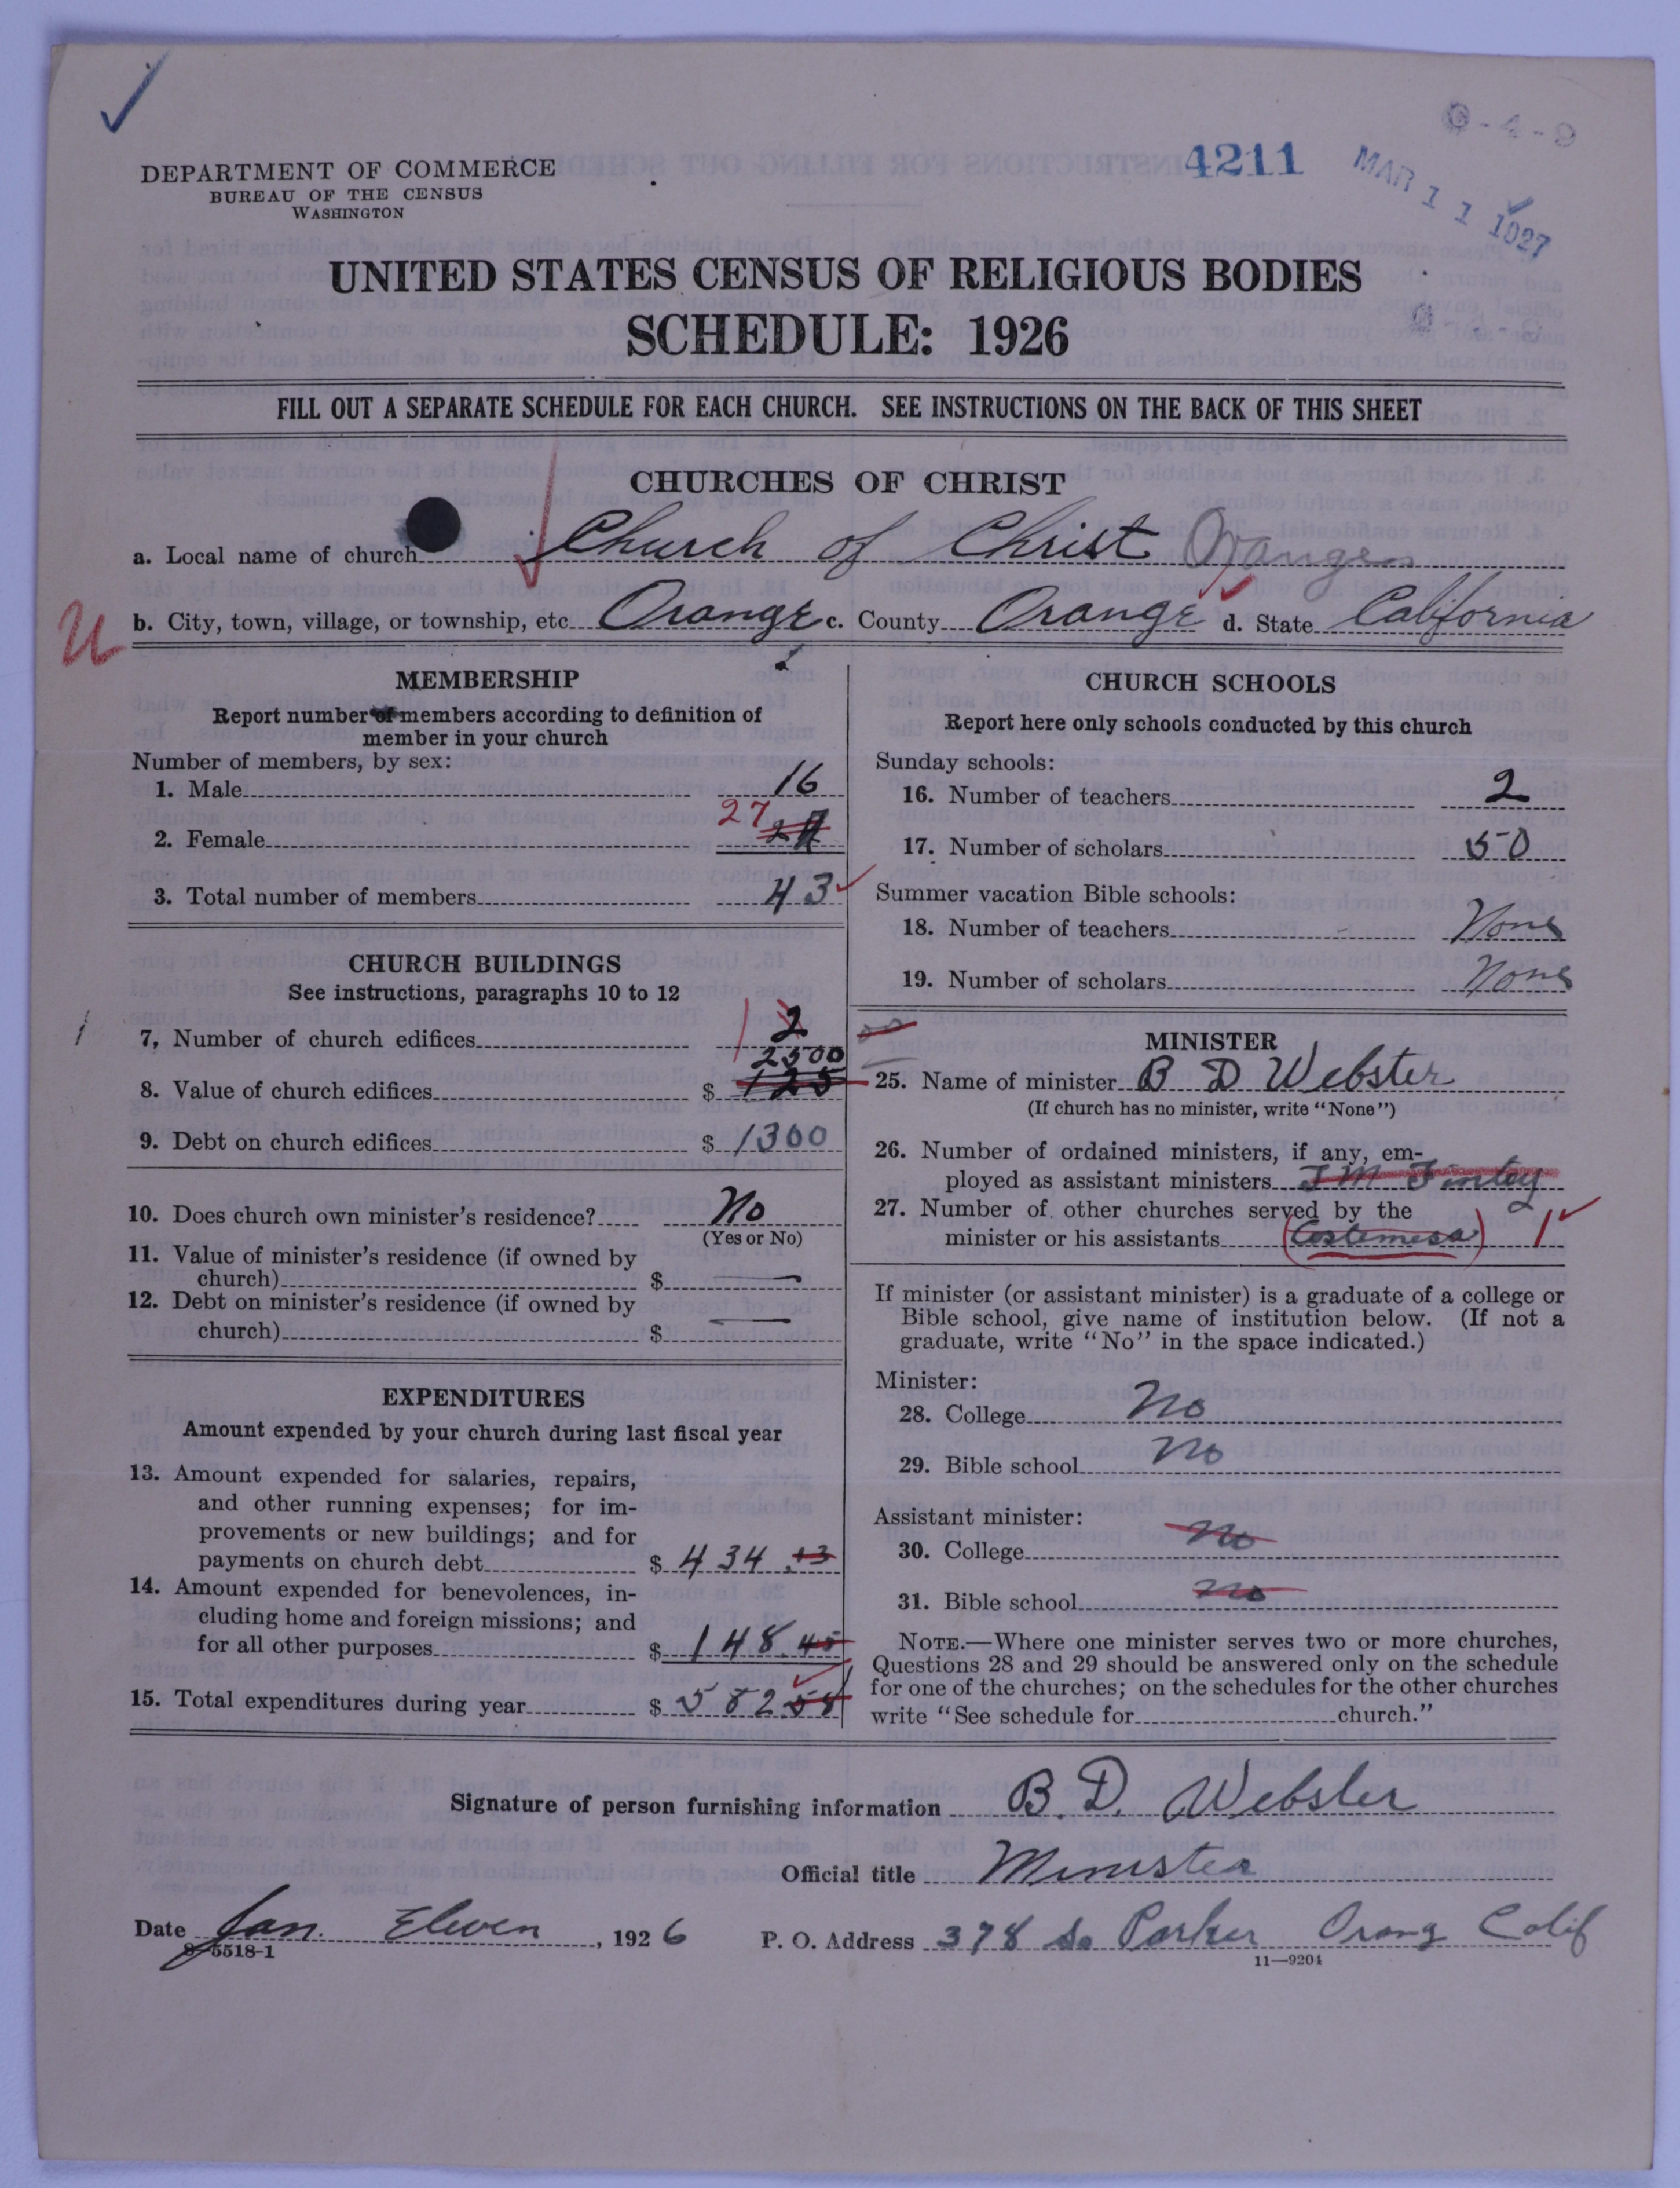 4211
MAR 11 1927
DEPARTMENT OF COMMERCE
BUREAU OF THE CENSUS
WASHINGTON
UNITED STATES CENSUS OF RELIGIOUS BODIES
SCHEDULE: 1926
FILL OUT A SEPARATE SCHEDULE FOR EACH CHURCH. SEE INSTRUCTIONS ON THE BACK OF THIS SHEET
CHURCHES OF CHRIST
a. Local name of church Church of Christ Orange
U
b. City, town, village, or township, etc. Orange c. County Orange d. State California
MEMBERSHIP
Report number of members according to definition of
member in your church
Number of members, by sex:
1. Male 16
2. Female 27
3. Total number of members 43
CHURCH BUILDINGS
See instructions, paragraphs 10 to 12
7, Number of church edifices 1 2
2500
8. Value of church edifices $ 125
9. Debt on church edifices $ 1300
10. Does church own minister's residence? No
(Yes or No)
11. Value of minister's residence (if owned by
church) $ —
12. Debt on minister's residence (if owned by
church) $ —
EXPENDITURES
Amount expended by your church during last fiscal year
13. Amount expended for salaries, repairs,
and other running expenses; for im-
provements or new buildings; and for
payments on church debt $ 434.13
14. Amount expended for benevolences, in-
cluding home and foreign missions; and
for all other purposes $ 148.45
15. Total expenditures during year $ 582.58
CHURCH SCHOOLS
Report here only schools conducted by this church
Sunday schools:
16. Number of teachers 2
17. Number of scholars 50
Summer vacation Bible schools:
18. Number of teachers None
19. Number of scholars None
MINISTER
25. Name of minister B D Webster
(If church has no minister, write "None")
26. Number of ordained ministers, if any, em-
ployed as assistant ministers J M Finley
27. Number of other churches served by the
minister or his assistants (Costemesa) 1
If minister (or assistant minister) is a graduate of a college or
Bible school, give name of institution below. (If not a
graduate, write "No" in the space indicated.)
Minister:
28. College No
29. Bible school No
Assistant minister:
30. College No
31. Bible school No
NOTE.—Where one minister serves two or more churches,
Questions 28 and 29 should be answered only on the schedule
for one of the churches; on the schedules for the other churches
write "See schedule for church."
Signature of person furnishing information B. D. Webster
Official title Minister
Date Jan. Eleven, 1926 P. O. Address 378 So Parker Orang Calif
8-5518-1
11—9204